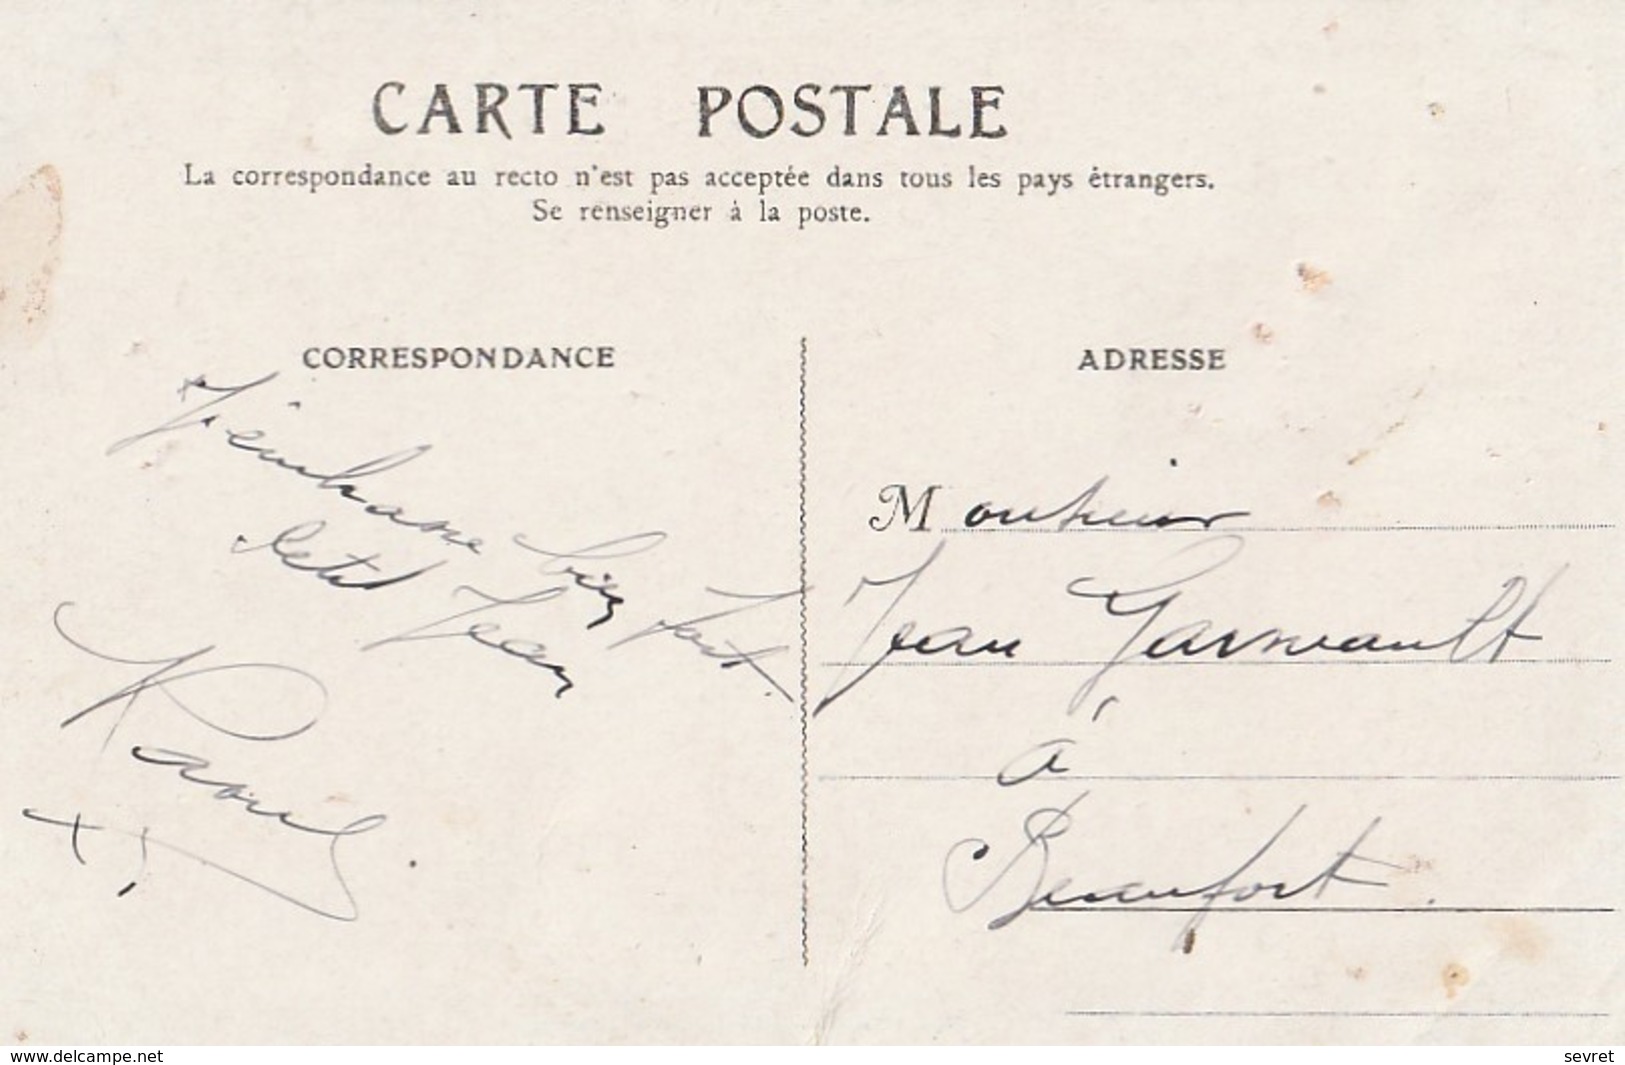 CARTE POSTALE
La correspondance au recto n'est pas acceptée dans tous les pays étrangers.
Se renseigner à la poste.
CORRESPONDANCE
J'embrasse bien fort
petit Jean
Raoul
ADRESSE
Monsieur
Jean Garnault
à
Beaufort.
www.delcampe.net
sevret